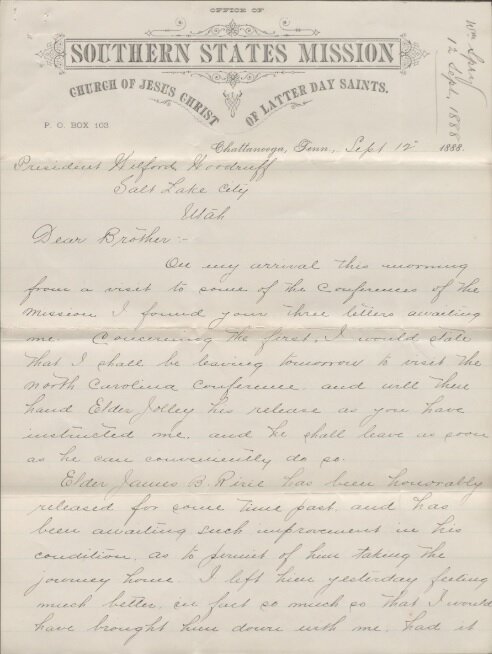 OFFICE OF
SOUTHERN STATES MISSION
CHURCH OF JESUS CHRIST
OF LATTER DAY SAINTS.
P. O. BOX 103
Wm Spry
12 Sept. 1888
Chattanooga, Tenn., Sept 12" 1888.
President Wilford Woodruff
Salt Lake City
Utah
Dear Brother:-
On my arrival this morning
from a visit to some of the Conferences of the
Mission I found your three letters awaiting
me. Concerning the first, I would state
that I shall be leaving tomorrow to visit the
North Carolina Conference, and will then
hand Elder Jolley his release as you have
instructed me, and he shall leave as soon
as he can conveniently do so.
Elder James B. Ririe has been honorably
released for some time past, and has
been awaiting such improvement in his
condition, as to permit of him taking the
journey home. I left him yesterday feeling
much better, in fact so much so that I would
have brought him down with me, had it